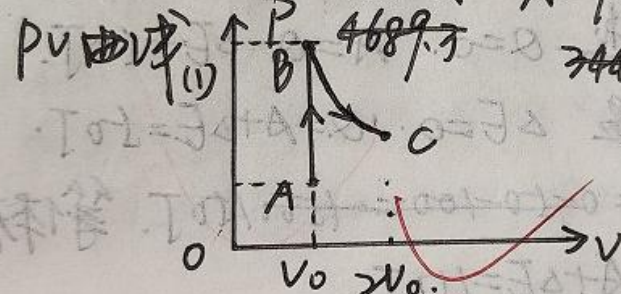 PV曲线
(1)
P
4689.3
344
B
C
A
O
V₀
2V₀.
V